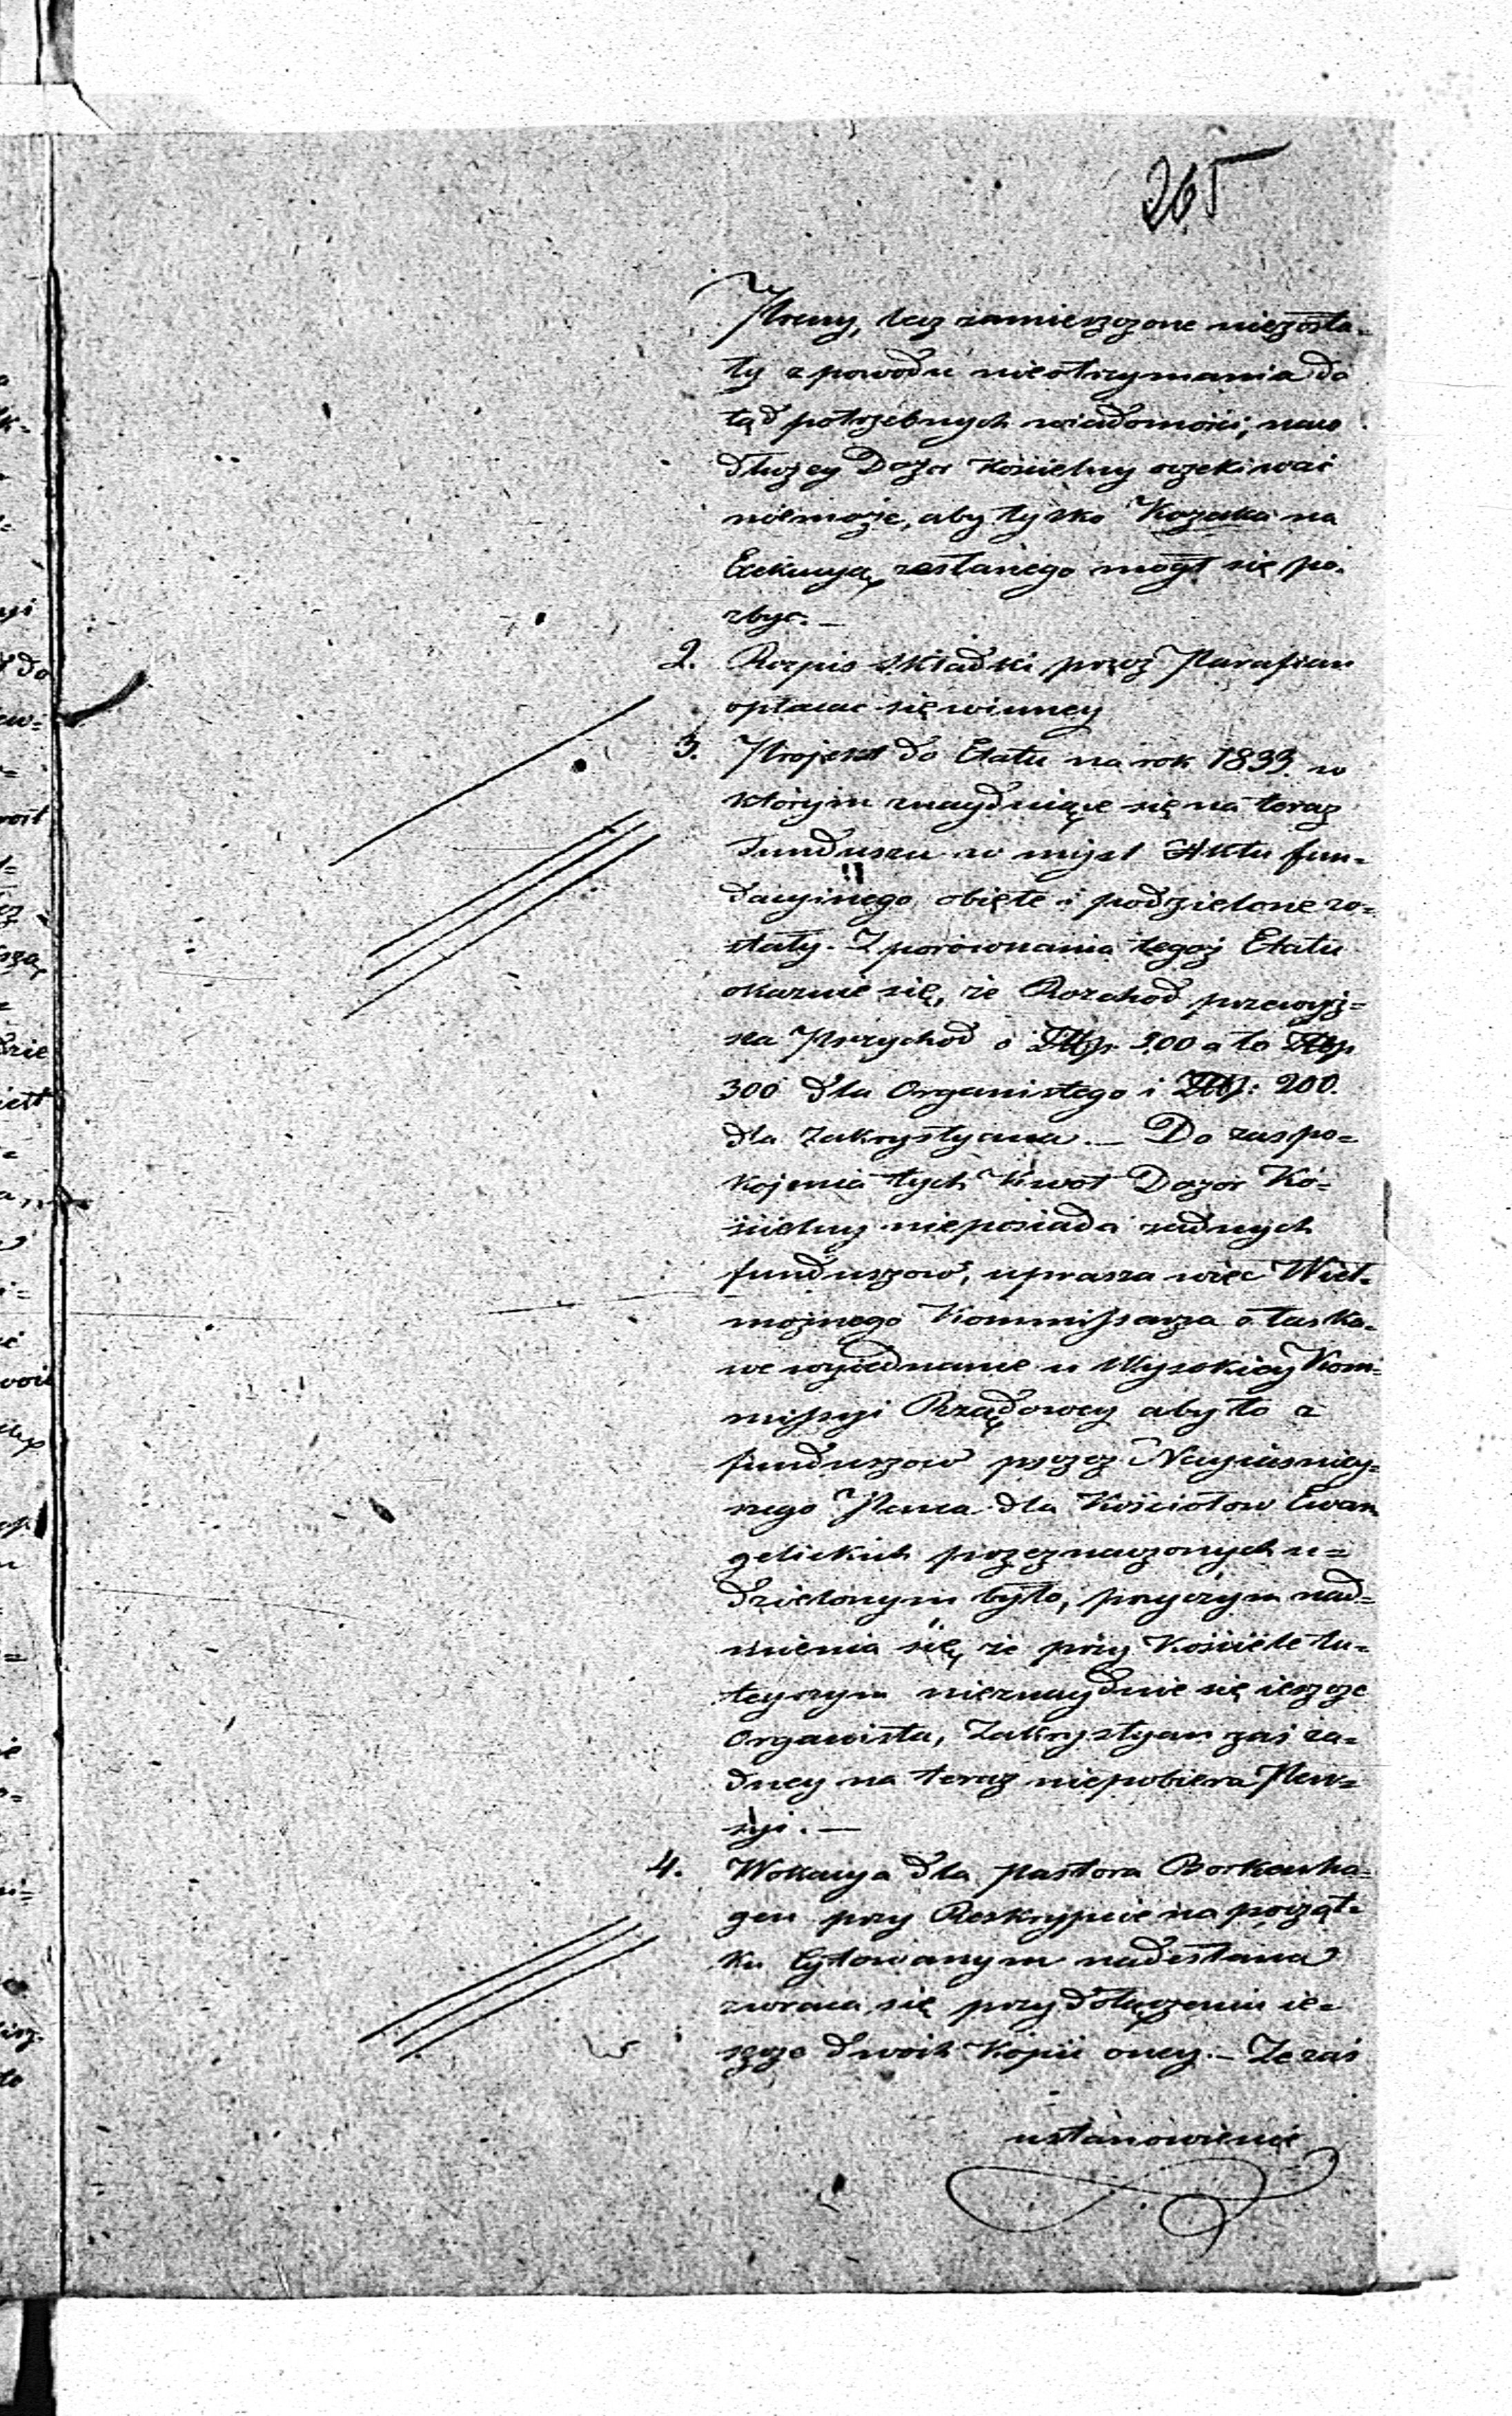 265
Preny, lecz zamieszczone niezosta-
ły z powodu nieotrzymania do
tąd potrzebnych wiadomości;
dłużey Dozor Kościelny oczekiwać
niemoże, aby tylko Kozaka na
Exekucyą zesłanego mogł się po-
zbyć. —
2. Rozpis składki przez Parafian
opłacać się winney
3. Projekt do Etatu na rok 1833. w
którym znayduiące się na teraz
Fundusze w myśl Aktu fun-
dacyinego obięte i podzielone zo-
stały. Z porównania tegoż Etatu
okazuie się, że Rozchod przewyż-
sza Przychod o Złłp. 500 a to Złłp
300 dla Organistego i Złłp: 200.
dla Zakrystyana. — Do zaspo-
kojenia tych Kwot Dozor Ko-
ścielny nieposiada żadnych
funduszow, uprasza więc Wiel-
możnego Kommissarza o łaska-
we wyiednanie u Wysokiey Kom-
missyi Rządowey aby to z
funduszow przez Nayiasniey-
szego Pana dla Kościołow Ewan
gelickich przeznaczonych u-
dzielonym było, przyczym nad-
mienia się że przy Kościele tu-
teyszym nieznayduie się ieszcze
Organista, Zakrystyan zaś ża-
dney na teraz niepobiera Pen-
syi. —
4. Wokacya dla Pastora Borkenha-
gen przy Reskrypcie na począt-
ku Cytowanym nadesłana
zwraca się przy dołączeniu ie-
szcze dwoch Kopii oney. — Że zaś
ustanowienie